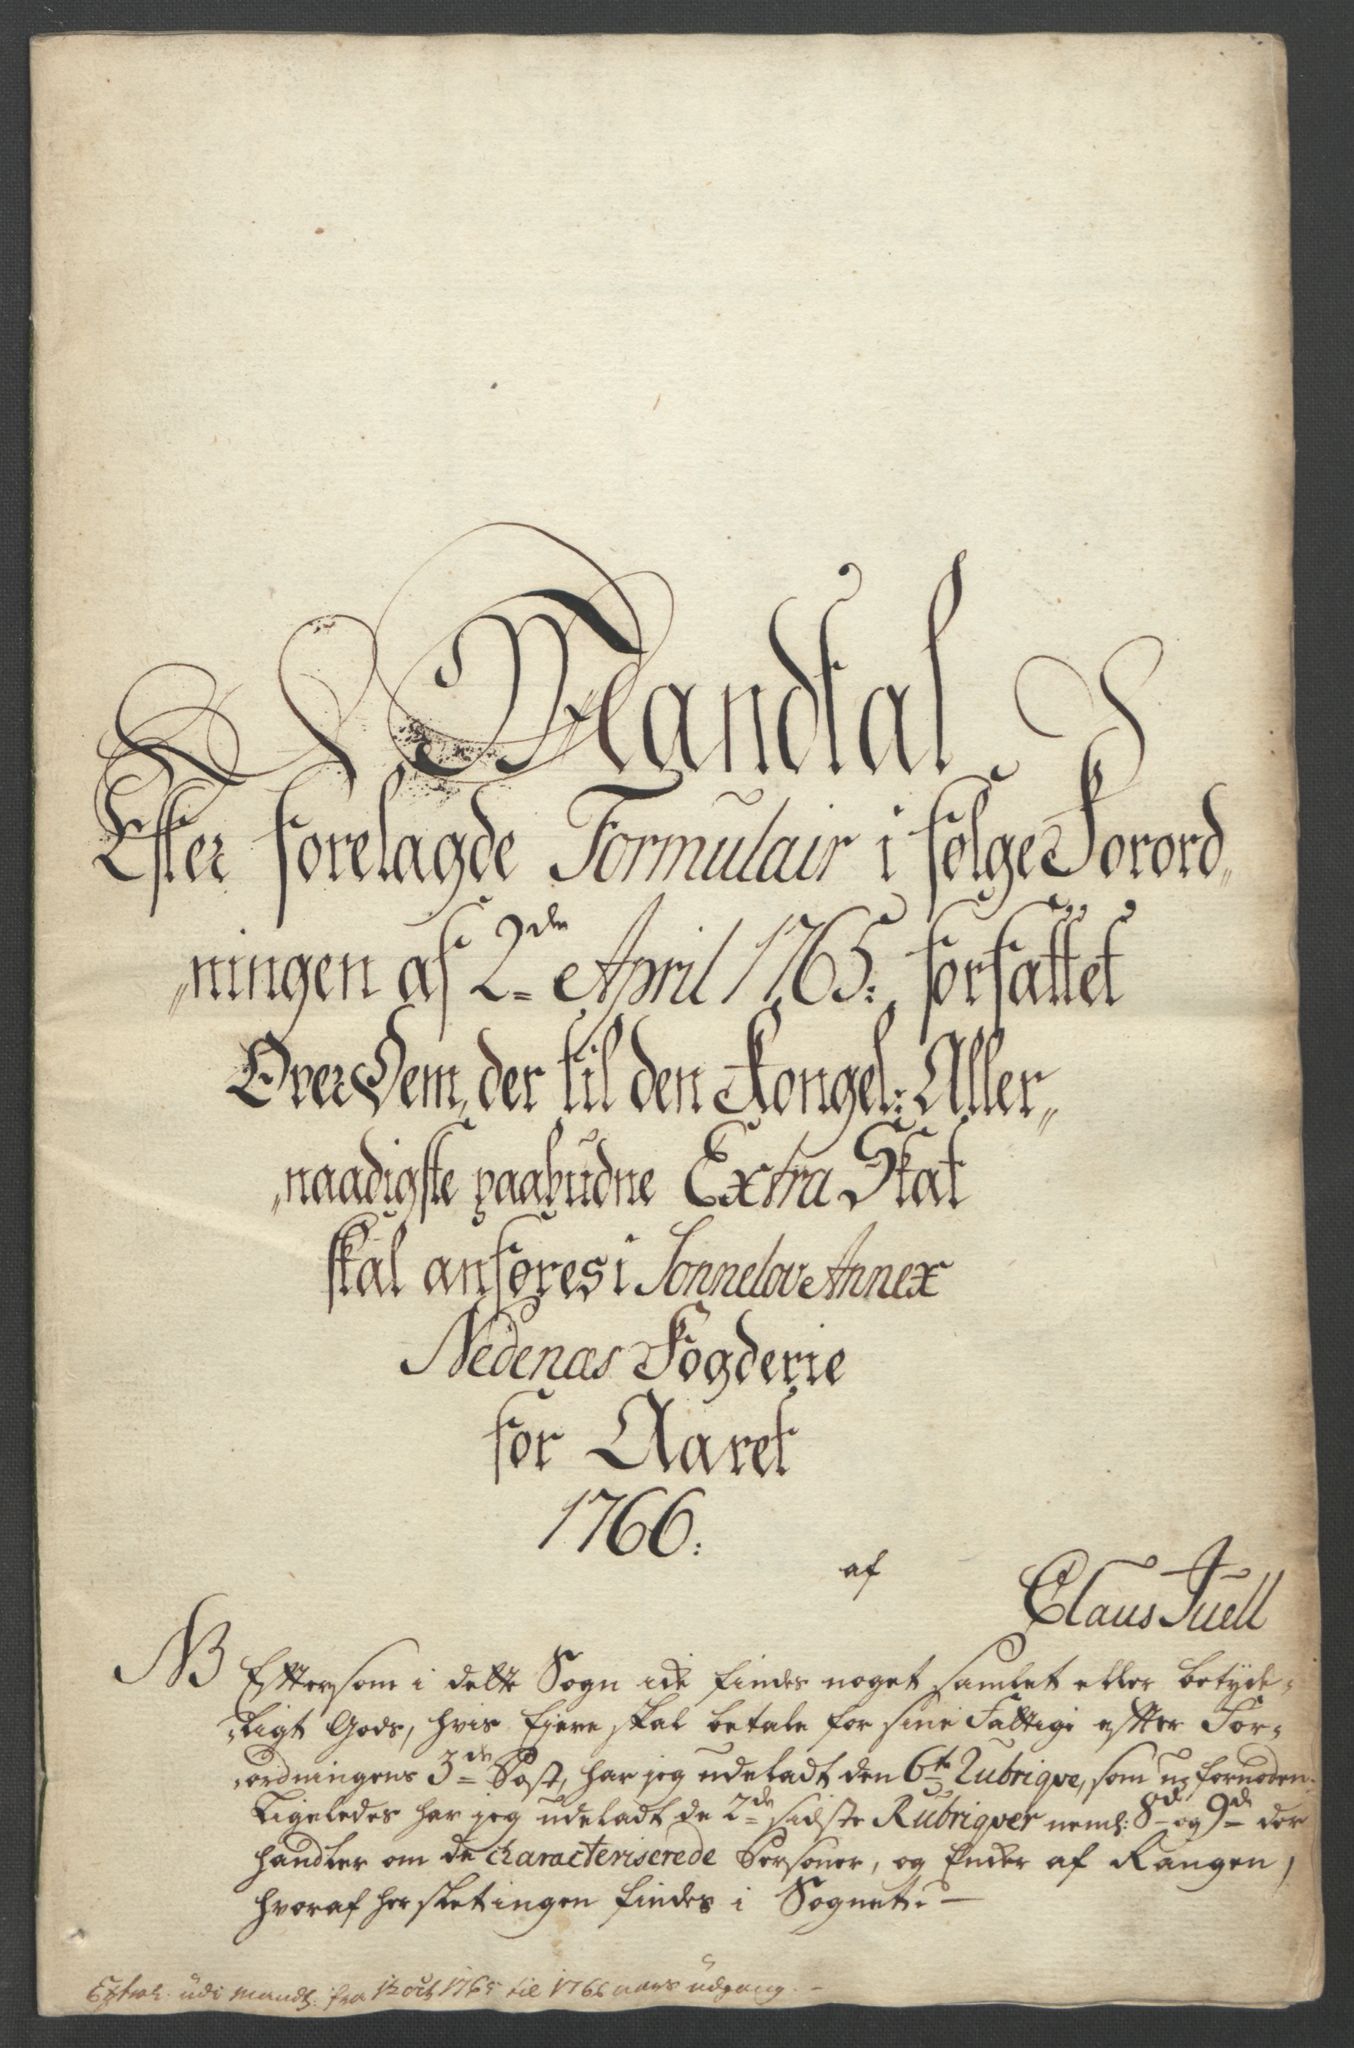 Mandtal
Efter forelagde Formulair i følge Forord„
„ningen af 2de April 1765: forfattet
Over Dem, der til den Kongel: Aller„
„naadigste paabudne Extra Skat
skal anføres i Sonnelov Annex
Nedenæs Fogderie
for Aaret
1766:
af
Claus Juell
NB Eftersom i dette Sogn icke findes noget samlet eller betyde„
„ligt Gods, hvis Eiere skal betale for sine Fattige efter For„
„ordningens 3de Post, har jeg udeladt den 6te Rubriqve, som
Ligeledes har jeg udeladt de 2de sidste Rubriqver neml: 8d og 9d der
handler om de characteriserede Personer, og Enker af Rangen,
hvoraf her slet ingen findes i Sognet. —
udi Mandt: fra 1te Oct 1765 til 1766 aars udgang. —